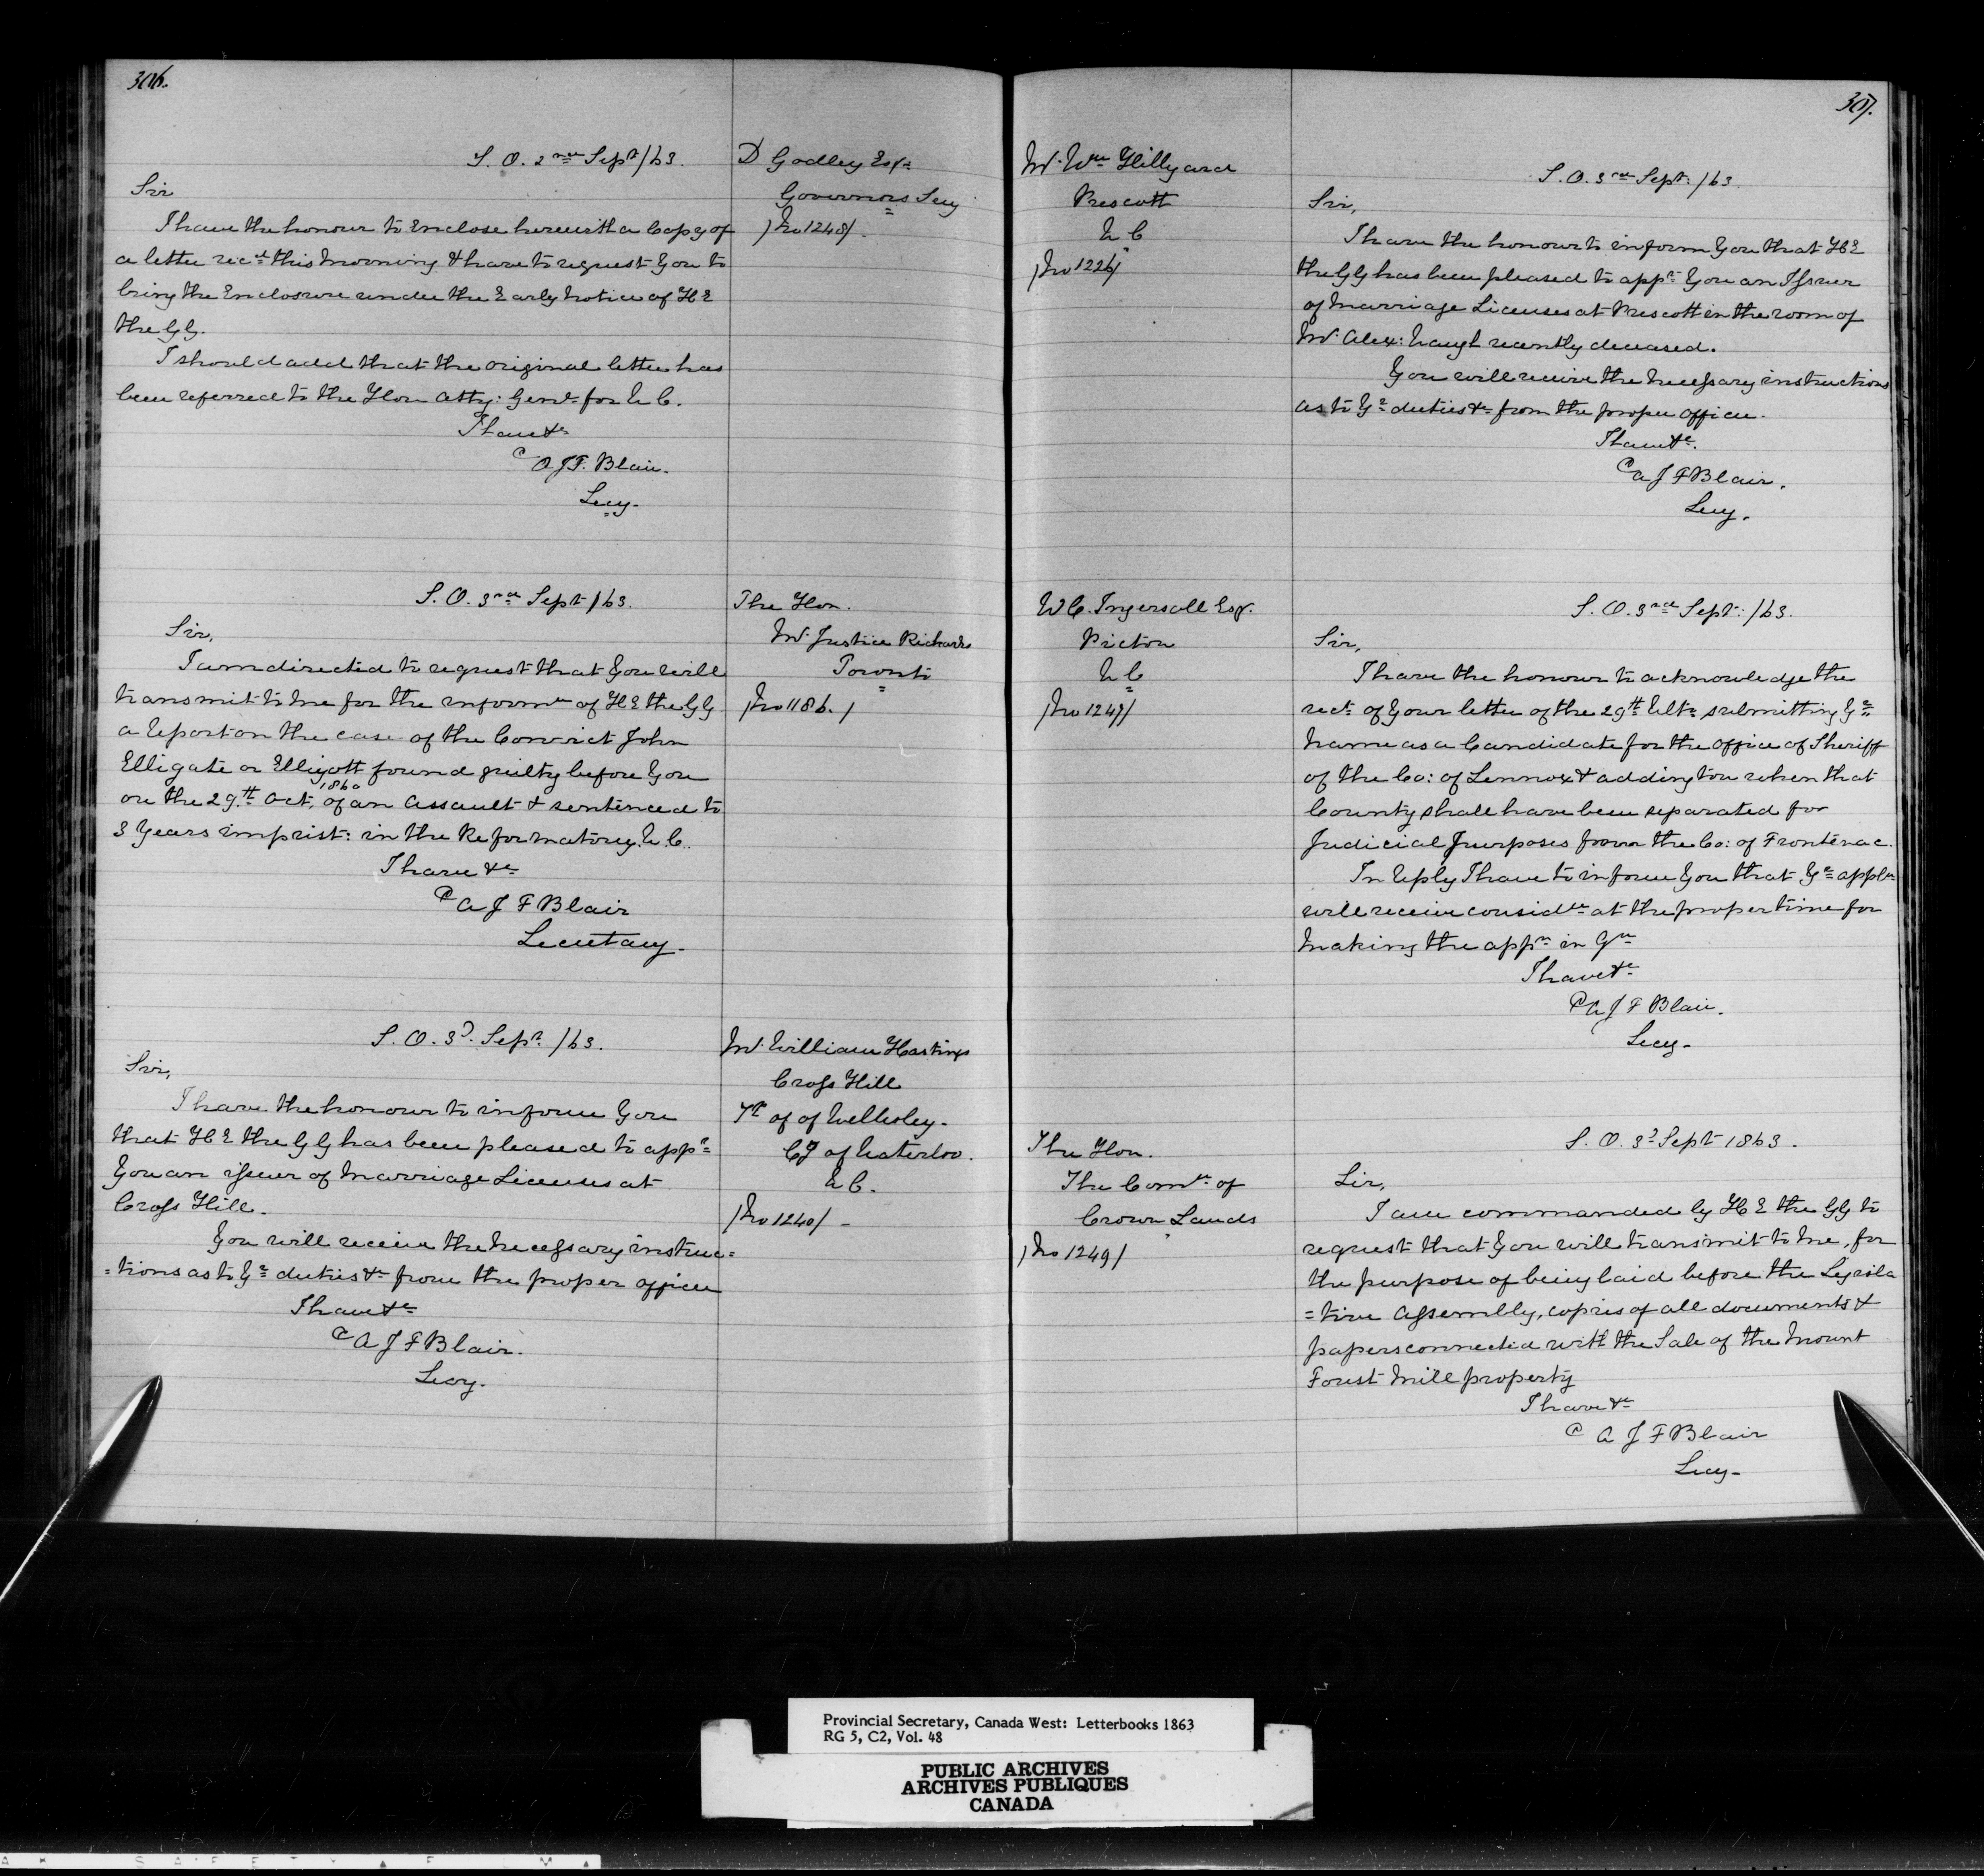 306.
S. O. 2nd Sept /63.
D Godley Esqr
Governors Secy
/No 1248/.
Sir
I have the honour to Enclose herewith a Copy of
a letter recd this Morning & have to request You to
bring the Enclosure under the Early Notice of H E
the G G.
I should add that the original letter has
been referred to the Hon Atty: Genl for U C.
I have &c
A J F. Blair.
Secy.
S. O. 3rd Sept /63.
The Hon.
Mr Justice Richards
Toronto
/No 1186./
Sir,
I am directed to request that You will
transmit to me for the informn of H E the G G
a Report on the case of the Convict John
Elligate or Elligott found guilty before You
on the 29th Oct, 1860 of an Assault & sentenced to
3 Years imprist: in the Reformatory. U. C.
I have &c
A J F Blair
Secretary.
S. O. 3d. Sept /63.
Mr William Hastings
Cross Hill
Tp of of Wellesley.
Cy of Waterloo.
U C.
/No 1240/ -
Sir,
I have the honour to inform You
that H E the G G has been pleased to appt
You an issuer of Marriage Licenses at
Cross Hill.
You will receive the Necessary instruc=
=tions as to Yr duties &c from the proper officer
I have &c
A J F Blair.
Secy.
307.
Mr Wm Hillyard
Prescott
U C
/No 1226/
S. O. 3rd Sept: /63.
Sir,
I have the honour to inform You that H E
the G G has been pleased to appt You an Issuer
of Marriage Licenses at Prescott in the room of
Mr Alex: Haugh recently deceased.
You will receive the Necessary instructions
as to Yr duties &c from the proper officer.
I have &c.
A J F Blair.
Secy.
W C. Ingersoll Esqr.
Picton
U C
/No 1247/
S. O. 3rd Sept: /63.
Sir,
I have the honour to acknowledge the
rect of Your letter of the 29th Ulto submitting Yr
Name as a Candidate for the office of Sheriff
of the Co: of Lennox & Addington when that
County shall have been separated for
Judicial Purposes from the Co: of Frontenac.
In Reply I have to inform You that Yr appln
will receive considn at the proper time for
Making the appt in Qn
I have &c
A J F Blair.
Secy.
The Hon.
The Comr of
Crown Lands
/No 1249/
S. O. 3d Sept 1863.
Sir,
I am commanded by H E the G G to
request that You will transmit to Me, for
the purpose of being laid before the Legisla
=tive Assembly, copies of all documents &
papers connected with the Sale of the Mount
Forest Mill property
I have &c
A J F Blair
Secy.
Provincial Secretary, Canada West: Letterbooks 1863
RG 5, C2, Vol. 48
PUBLIC ARCHIVES
ARCHIVES PUBLIQUES
CANADA